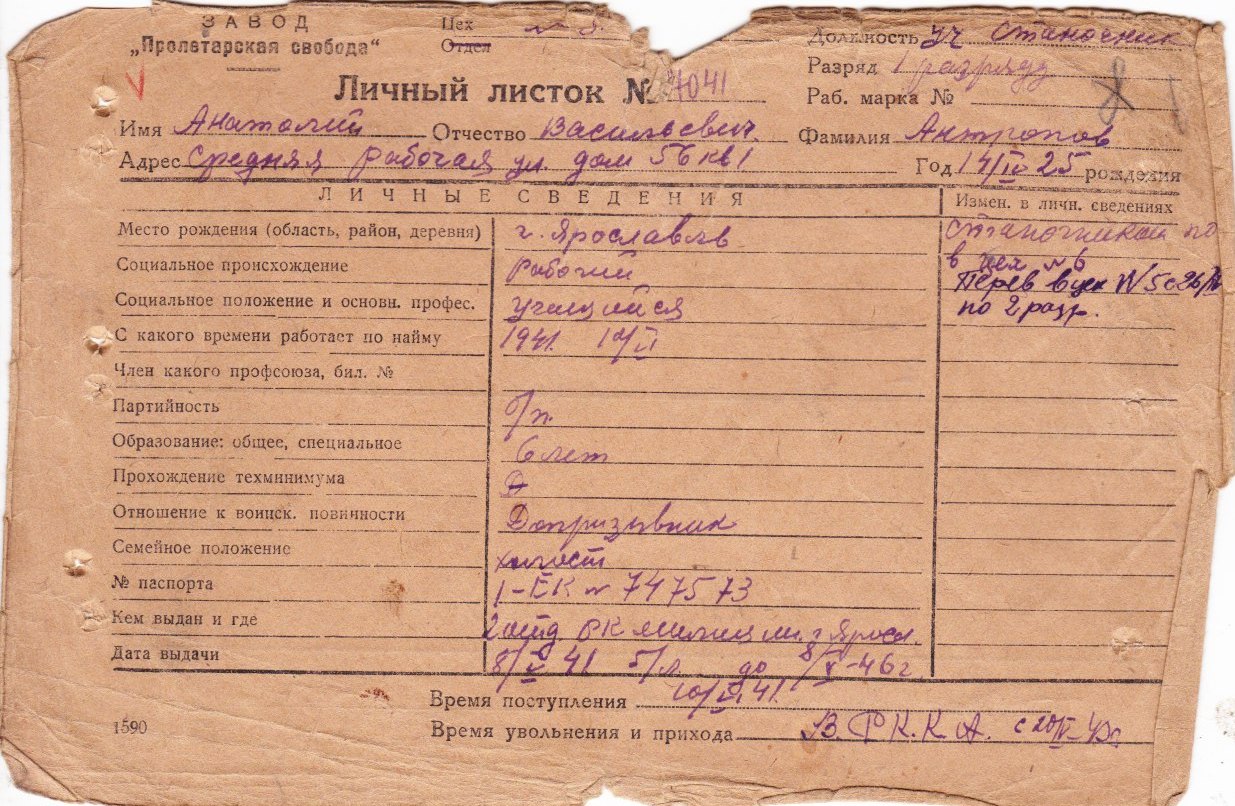 ЗАВОД
„Пролетарская свобода“
Цех № 8.
Отдел
Должность уч станочник
Разряд 1 разряду
Раб. марка №
Личный листок № 7041
Имя Анатолий Отчество Васильевич Фамилия Антропов
Адрес Средняя Рабочая ул. дом 56 кв 1 Год 14/IV 25 рождения
ЛИЧНЫЕ СВЕДЕНИЯ Измен. в личн. сведениях
Место рождения (область, район, деревня) г. Ярославль
Социальное происхождение Рабочий
Социальное положение и основн. профес. учащийся
С какого времени работает по найму 1941
Член какого профсоюза, бил. №
Партийность б/п.
Образование: общее, специальное 6 лет
Прохождение техминимума
Отношение к воинск. повинности Допризывник
Семейное положение холост
№ паспорта 1-ЕК № 747573
Кем выдан и где 2 отд. РК милиции г Яросл.
Дата выдачи 41 до 46 г.
станочником по
в цех № 6
Перев в цех № 5 с
по 2 разр.
Время поступления 41.
Время увольнения и прихода В. Р.К.К.А. с
1590